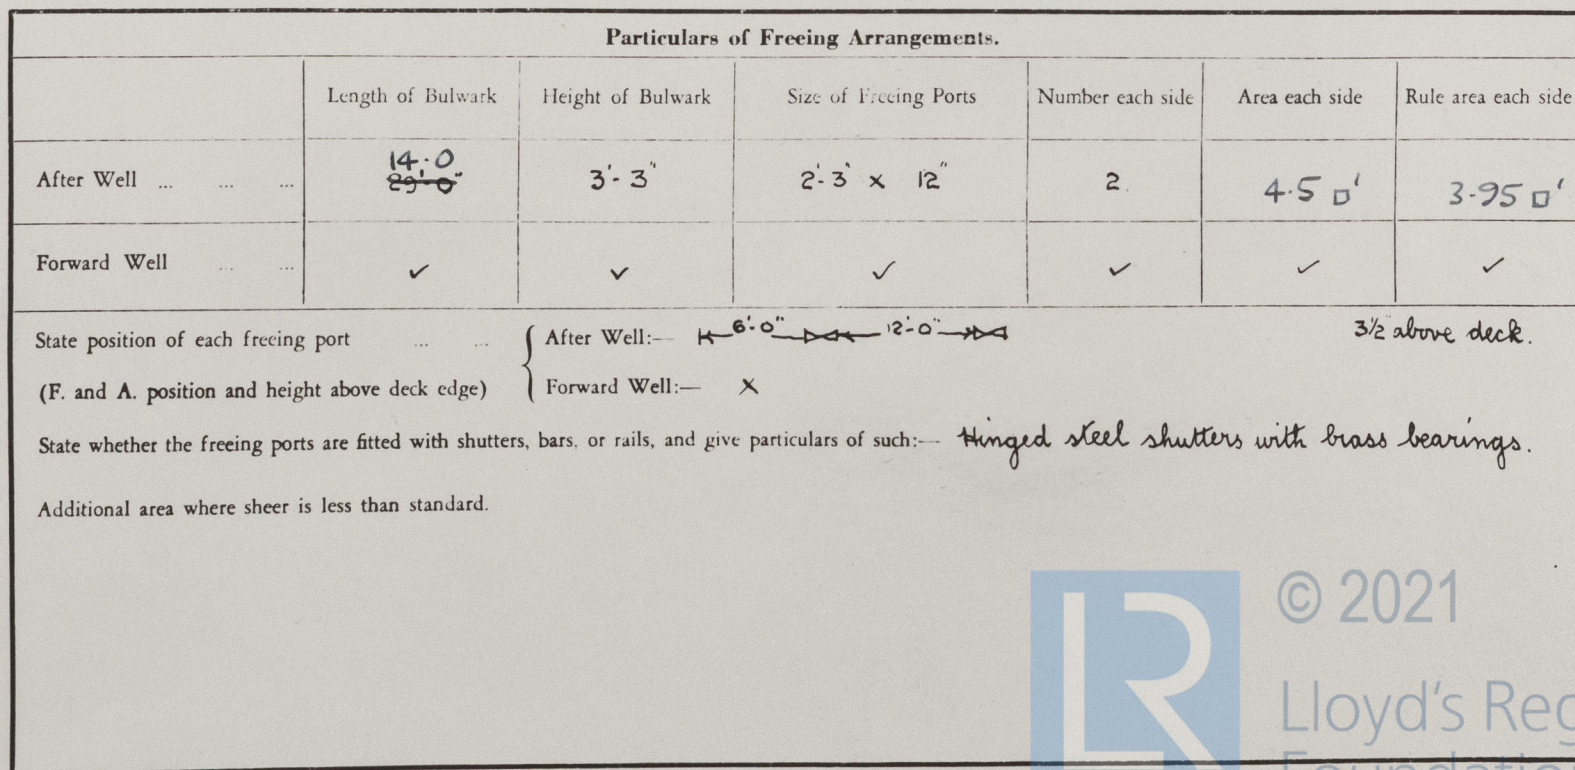 Particulars of Freeing Arrangements.
Length of Bulwark Height of Bulwark Size of Freeing Ports Number each side Area each side Rule area each side
14·0
After Well ... ... ... 29'-0" 3'-3" 2'-3" x 12" 2 4·5 □' 3·95 □'
Forward Well ... ... ✓ ✓ ✓ ✓ ✓ ✓
State position of each freeing port ... ... After Well:— 6'-0" 12'-0" 3½" above deck.
(F. and A. position and height above deck edge) Forward Well:— X
State whether the freeing ports are fitted with shutters, bars, or rails, and give particulars of such:— Hinged steel shutters with brass bearings.
Additional area where sheer is less than standard.
LR
© 2021
Lloyd's Reg
Foundation